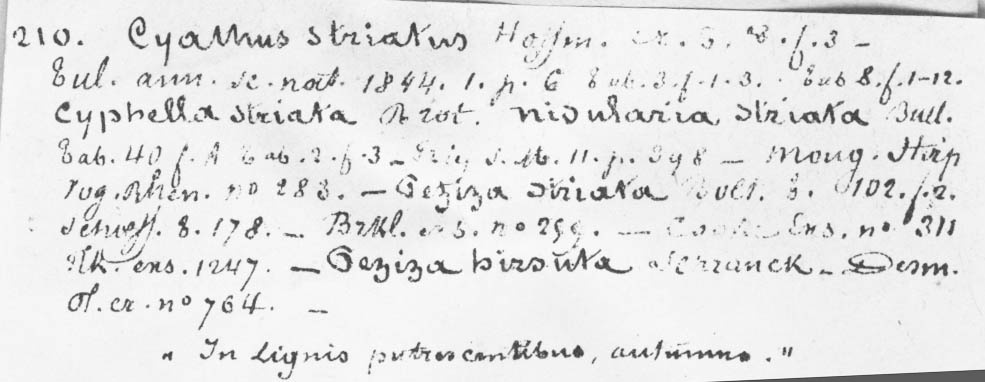 210. Cyathus striatus Hoffm. cr. 5. t. 8. f. 3 —
Tul. ann. sc. nat. 1844. 1. p. 6 tab. 3. f. 1-3. tab 8. f. 1-12.
Cyphella striata Brot. nidularia striata Bull.
tab. 40 f. A tab. 2. f. 3 — s. m. 11. p. 298 — Moug. Stirp
Vog. Rhen. no 283. — Peziza striata Bolt. t. 102. f. 2.
Schaeff. t. 178. — Brkl. exs. no 299. — Cooke Exs. no 311
Fkl. exs. 1247. — Peziza hirsuta Schranck — Desm.
Pl. cr. no 764. —
"In lignis putrescentibus, autumno."